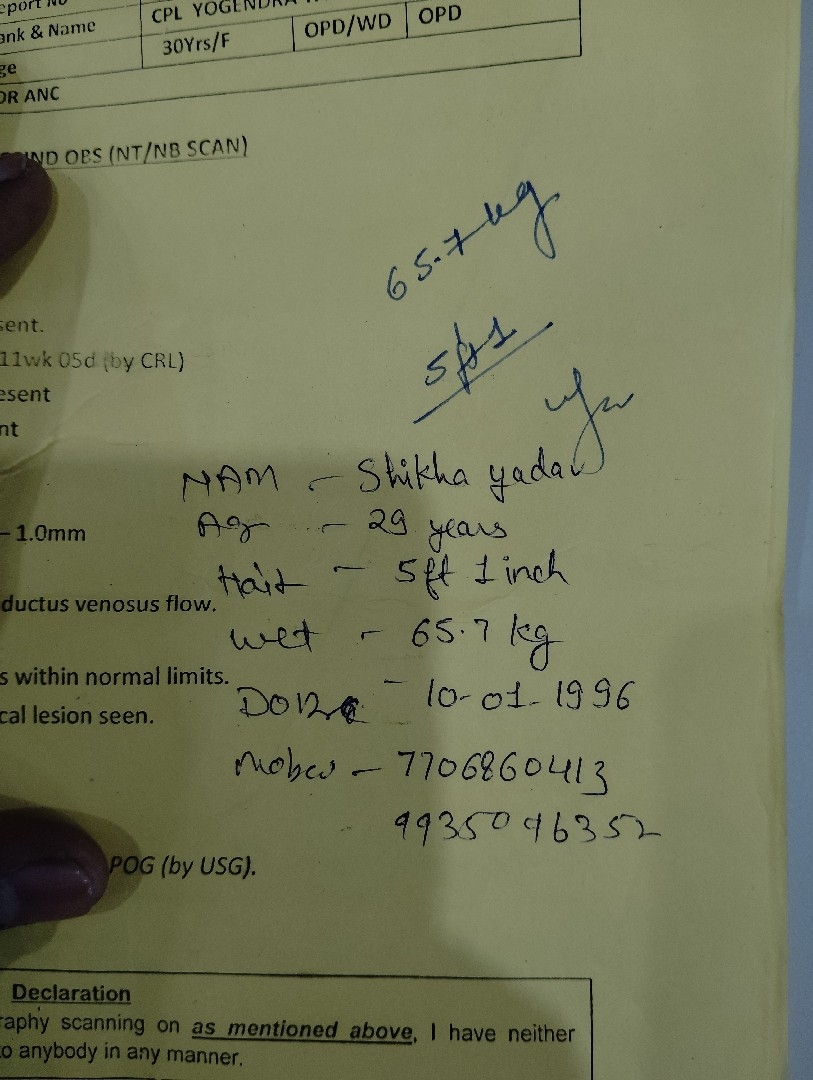 eport No
ank & Name
CPL YOGENDRA
ge
30Yrs/F
OPD/WD
OPD
OR ANC
IND OBS (NT/NB SCAN)
65.7 kg
5ft 1
sent.
11wk 05d (by CRL)
esent
nt
NAM - Shikha yadav
Ag - 29 years
– 1.0mm
Hait - 5ft 1 inch
ductus venosus flow.
wet - 65.7 kg
s within normal limits.
- 10-01-1996
cal lesion seen.
- 7706860413
9935096352
POG (by USG).
Declaration
raphy scanning on as mentioned above, I have neither
o anybody in any manner.